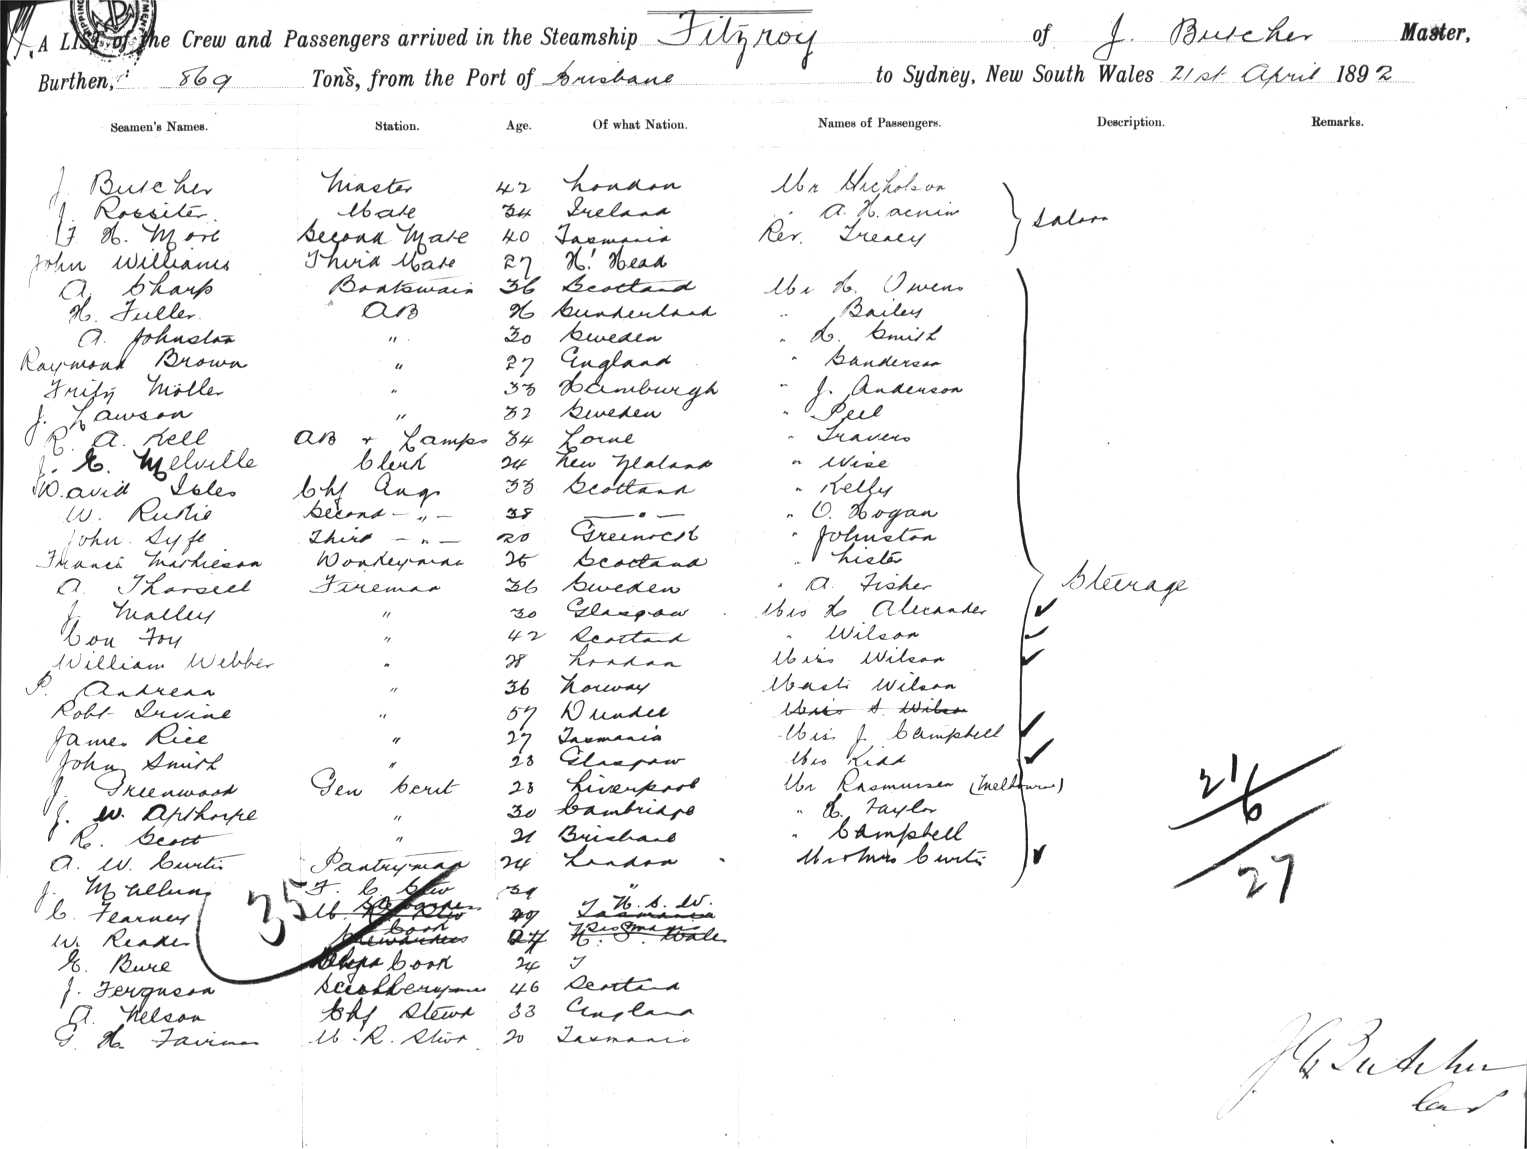 A LIST of the Crew and Passengers arrived in the Steamship Fitzroy of J. Butcher Master,
Burthen, 869 Tons, from the Port of Brisbane to Sydney, New South Wales 21st April 1892
Seamen's Names. Station. Age. Of what Nation. Names of Passengers. Description. Remarks.
J. Butcher Master 42 London Mr Nicholson
J. Rossiter Mate 34 Ireland " A. Saloon
F H. More Second Mate 40 Tasmania Rev. Treacy
John Williams Third Mate 27 H. Head
A. Sharp Boatswain 36 Scotland Mr H. Owens
H. Fuller AB Sunderland " Bailey
A. Johnston " 30 Sweden " H. Smith
Raymond Brown " 27 England " Sanderson
Fritz Möller " 33 Hamburgh " J. Anderson
J. Lawson " 32 Sweden " Peel
R. A. Kell AB & Lamps 34 Lorne " Travers
J. E. Melville Clerk 24 New Zealand " Wise
David Isles Chf Eng. 33 Scotland " Kelly
W. Second - " - 38 - " - " O. Hogan
John Syfe Third - " - 20 Greenock " Johnston
Francis Mathieson Donkeyman 26 Scotland " Lister
A. Thorsell Fireman 36 Sweden " A. Fisher Steerage
J. Malley " 30 Glasgow Mrs H Alexander
Con Foy " 42 Scotland " Wilson
William Webber " 28 London Miss Wilson
P. Andrean " 36 Norway Mast. Wilson
Robt Irvine " 57 Dundee Miss S. Wilson
James Rice " 27 Tasmania Miss J. Campbell
John Smith " 23 Glasgow Mrs Kidd
J. Greenwood Gen Serv 23 Liverpool Mr Rasmussen (Melbourne) 21
J. W. Apthorpe " 30 Cambridge " H. Taylor 6
R. Scott " 21 Brisbane " Campbell
A. W. Curtis Pantryman 24 London " Mr & Mrs Curtis 27
J. F. C. Stew 39 "
C. Fearney 35 N. S. W. Tasmania
W. Reader Cook Stewardess 24 N. S. Wales
E. Bure Ships Cook 24
J. Ferguson Sculleryman 46 Scotland
A. Nelson Chf Stewd 33 England
G. H. Fairman M. R. Stwd 20 Tasmania
J Butcher